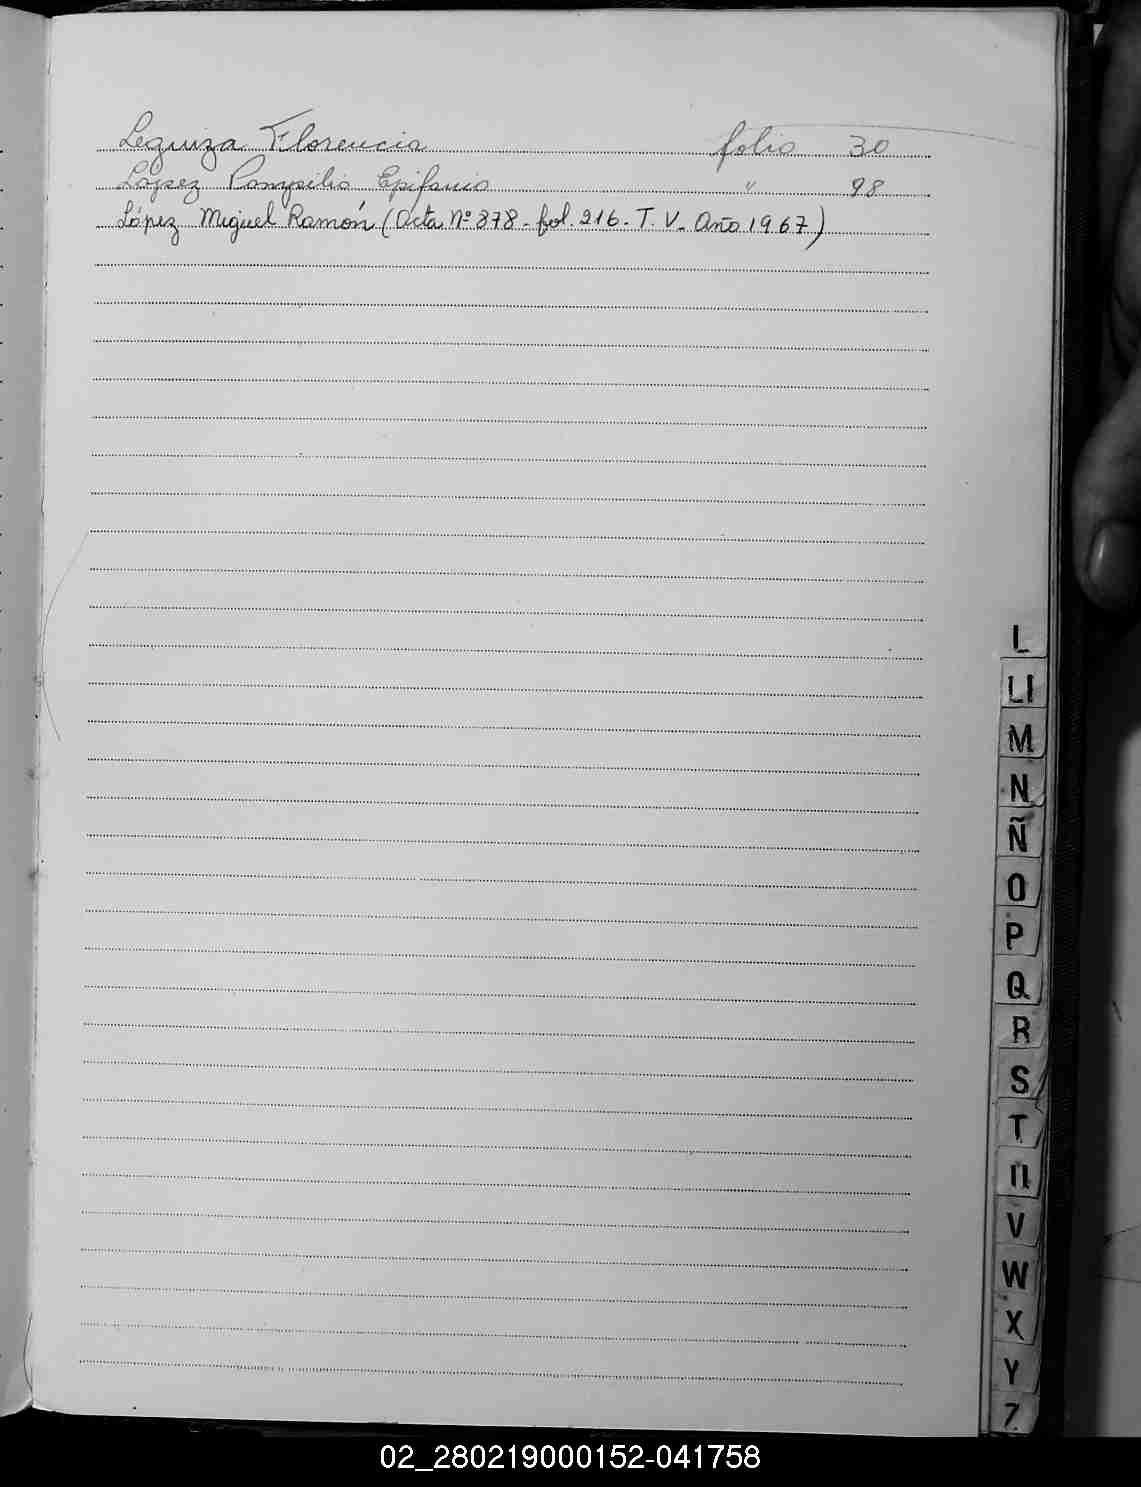 Leguiza Florencia folio 30
López Pompilio Epifanio " 98
López Miguel Ramón (Acta Nº 878 - fol. 216 - T. V. Año 1967)
L
Ll
M
N
Ñ
O
P
Q
R
S
T
U
V
W
X
Y
Z
02_280219000152-041758